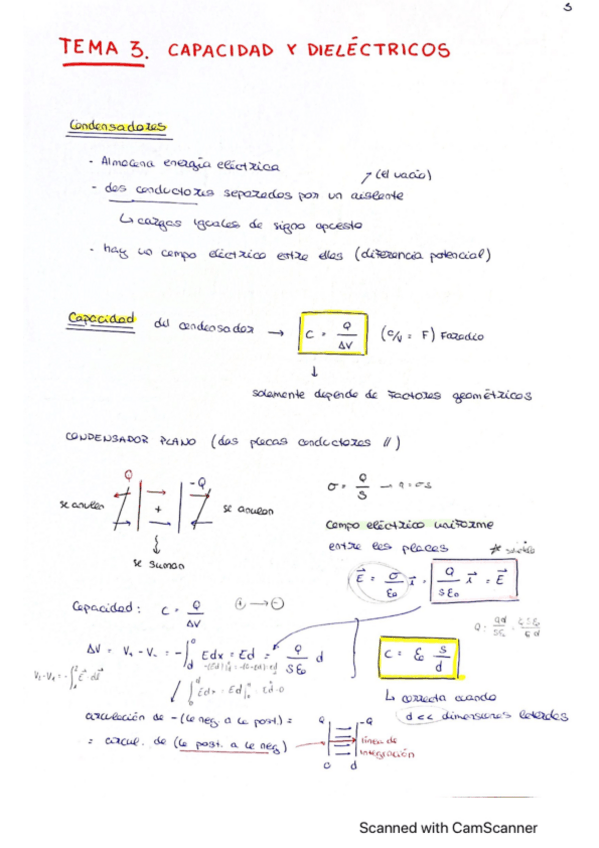 3
TEMA 3. CAPACIDAD Y DIELÉCTRICOS
Condensadores
- Almacena energía eléctrica
↗ (el vacío)
- dos conductores separados por un aislante
↳ cargas iguales de signo opuesto
- hay un campo eléctrico entre ellos (diferencia potencial)
Capacidad del condensador → C = Q/ΔV (C/V = F) Faradio
↓
solamente depende de factores geométricos
CONDENSADOR PLANO (dos placas conductores //)
Q -Q
se anulan + se anulan
se suman
σ = Q/S → q = σ·s
campo eléctrico uniforme
entre las placas
E = σ/ε₀ i = Q/Sε₀ i = E
Capacidad: C = Q/ΔV ⊕ → ⊖
ΔV = V₊ - V₋ = -∫ Edx = Ed = Q/Sε₀ d
C = ε₀ S/d
↳ correcta cuando
d << dimensiones laterales
circulación de -(la neg. a la post.) =
= circul. de (la post. a la neg.)
Q -Q
línea de
integración
0 d
Scanned with CamScanner